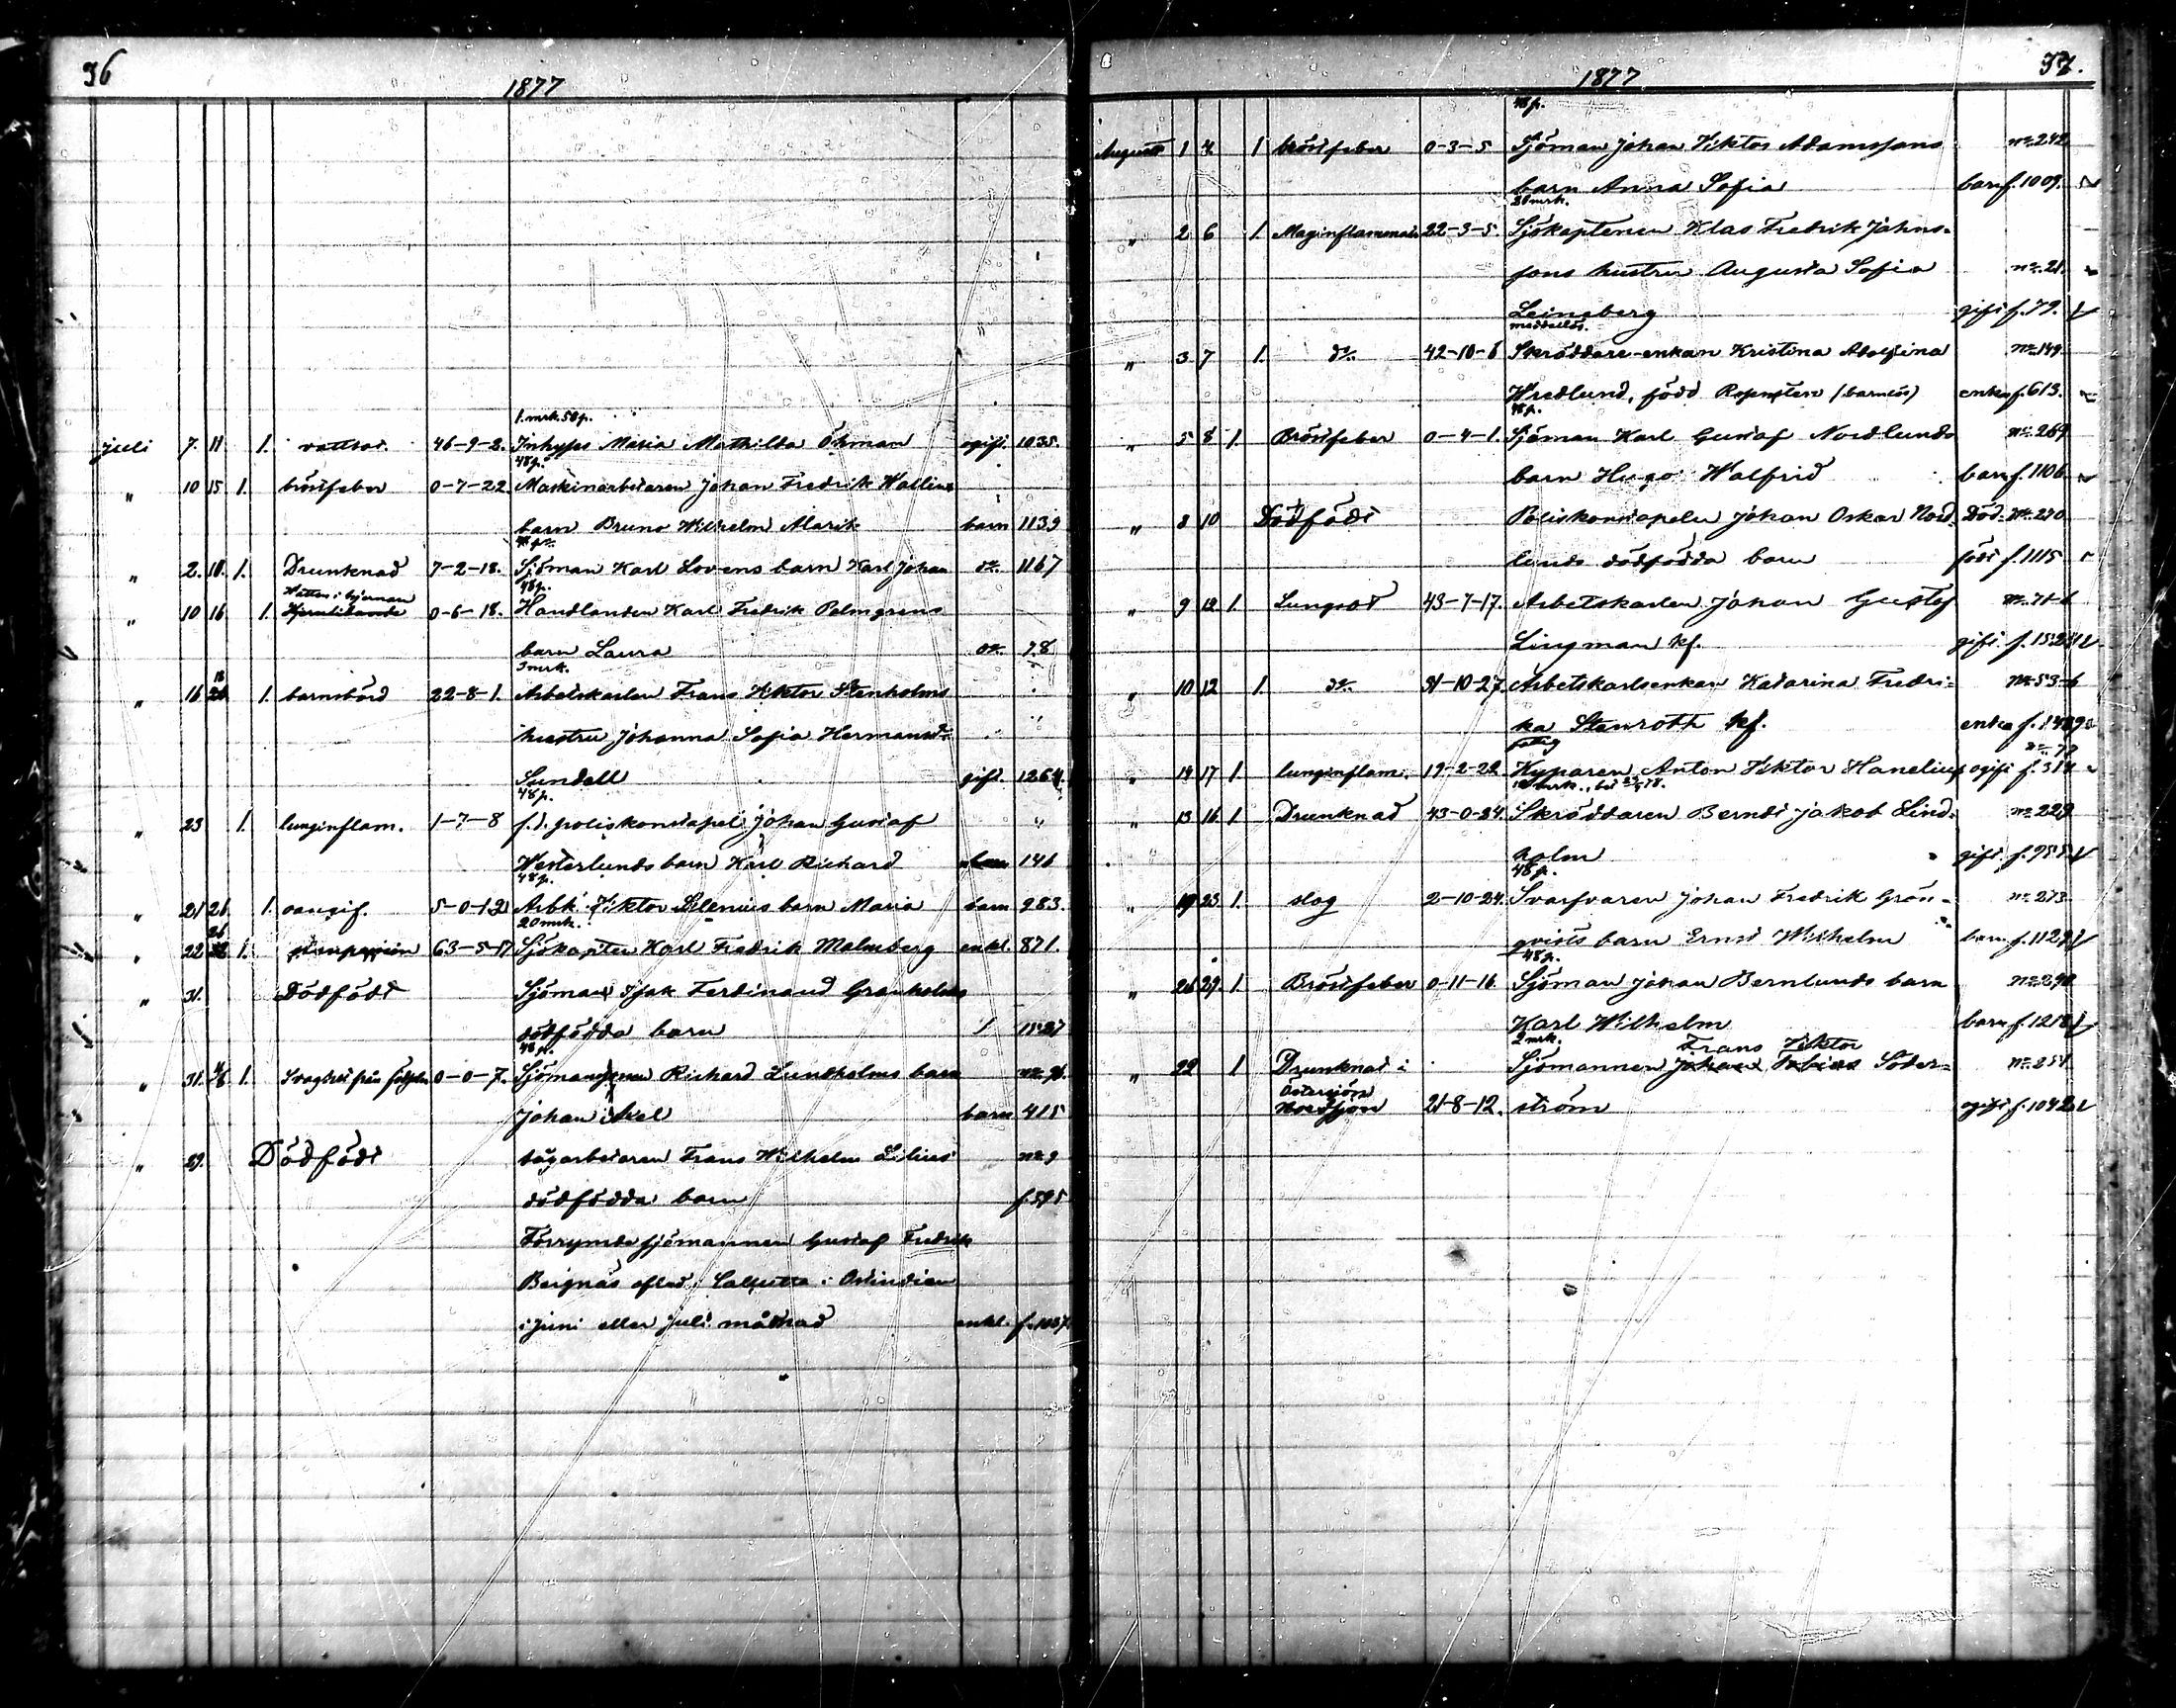 36
1877
1. mrk. 50 p.
juli 7. 11 1. 46-9-2. Inhyses Maria Mathilda Öhman ogift. 1035.
48 p.
" 10 15 1. bröstfeber 0-7-22. Maskinarbetaren Johan Fredrik Wallins
barn Bruno Wilhelm Alarik barn 1139
" 2. 10. 1. Drunknad 7-2-18. Sjöman Karl Lovens barn Karl Johan do. 1167
48 p.
Watten i hjernan
" 10 16 1. 0-6-18. Handlanden Karl Fredrik Palmgrens
barn Laura do. 78
3 mrk.
18
" 16 1. barnsbörd 22-8-1. Arbetskarlen Frans Viktor Stenholms
hustru Johanna Sofia Hermansdr
Sundell gift. 1264.
48 p.
" 23 1. lunginflam. 1-7-8 f.d. poliskonstapel Johan Gustaf
Westerlunds barn Karl Richard 146
48 p.
" 21 26 1. oangif. 5-0-12 Arbk. Viktor barn Maria barn 983.
20 mrk.
26
" 22 1. 63-5-17 Sjökapten Karl Fredrik Malmberg enkl. 871.
" 31. Dödfödt Sjöman Isak Ferdinand Granholms
dödfödda barn 1 1527
48 p.
" 31. 4/8 1. Svaghet från födseln 0-0-7. Sjöman Richard Lundholms barn
Johan Axel barn 415
" 29. Dödfödt sågarbetaren Frans Wilhelm Lilius no 9
dödfödda barn f. 595
Förrymde sjömannen Gustaf Fredrik
afled i Calcutta i Ostindien
i juni eller juli månad enkl. f. 1037.
37.
1877
48 p.
Augusti 1 4 1 bröstfeber 0-3-5 Sjöman Johan Viktor Adamssons no 242
barn Anna Sofia barn f. 1009.
20 mrk.
" 2 6 1. Maginflammation 22-3-5. Sjökaptenen Klas Fredrik Johns-
sons hustru Augusta Sofia no 21.
Leinberg gift f. 79.
medellös.
" 3 7 1. do. 42-10-6 Skräddare-enkan Kristina Adolfina no 149.
Wredlund, född (barnlös) enka f. 613.
48 p.
" 5 8 1. Bröstfeber 0-4-1. Sjöman Karl Gustaf Nordlunds no 269
barn Hugo Walfrid barn f. 1106
" 8 10 Dödfödt Poliskonstapeln Johan Oskar Nord- Död- no 270
lunds dödfödda barn födt f. 1115
" 9 12 1. Lungsot 43-7-17. Arbetskarlen Johan Gustaf no 71-6
Lingman kf. gift. f. 1525
" 10 12 1. do. 31-10-27 Arbetskarlsenkan Katarina Fredri- no 53-6
ka Stenroth kf. enka f. 1489
fattig no 72
" 14 17 1. lunginflam. 19-2-22 Kyparen Anton Viktor Hanelius ogift f. 314
" 13 16 1. Drunknad 43-0-24. Skräddaren Berndt Jakob Lind- no 229
holm gift. f. 955
48 p.
" 19 23 1. slag 2-10-24. Svarfvaren Johan Fredrik Grön- no 273
qvists barn Ernst Wilhelm barn f. 1129
48 p.
" 26 29. 1. Bröstfeber 0-11-16 Sjöman Johan Bernlunds barn no 290
Karl Wilhelm barn f. 1218
2 mrk. Frans Viktor
" 22 1 Drunknat i Sjömannen Johan Tobias Söder- no 251
Östersjön
Nordsjön 21-8-12. ström ogift f. 1042